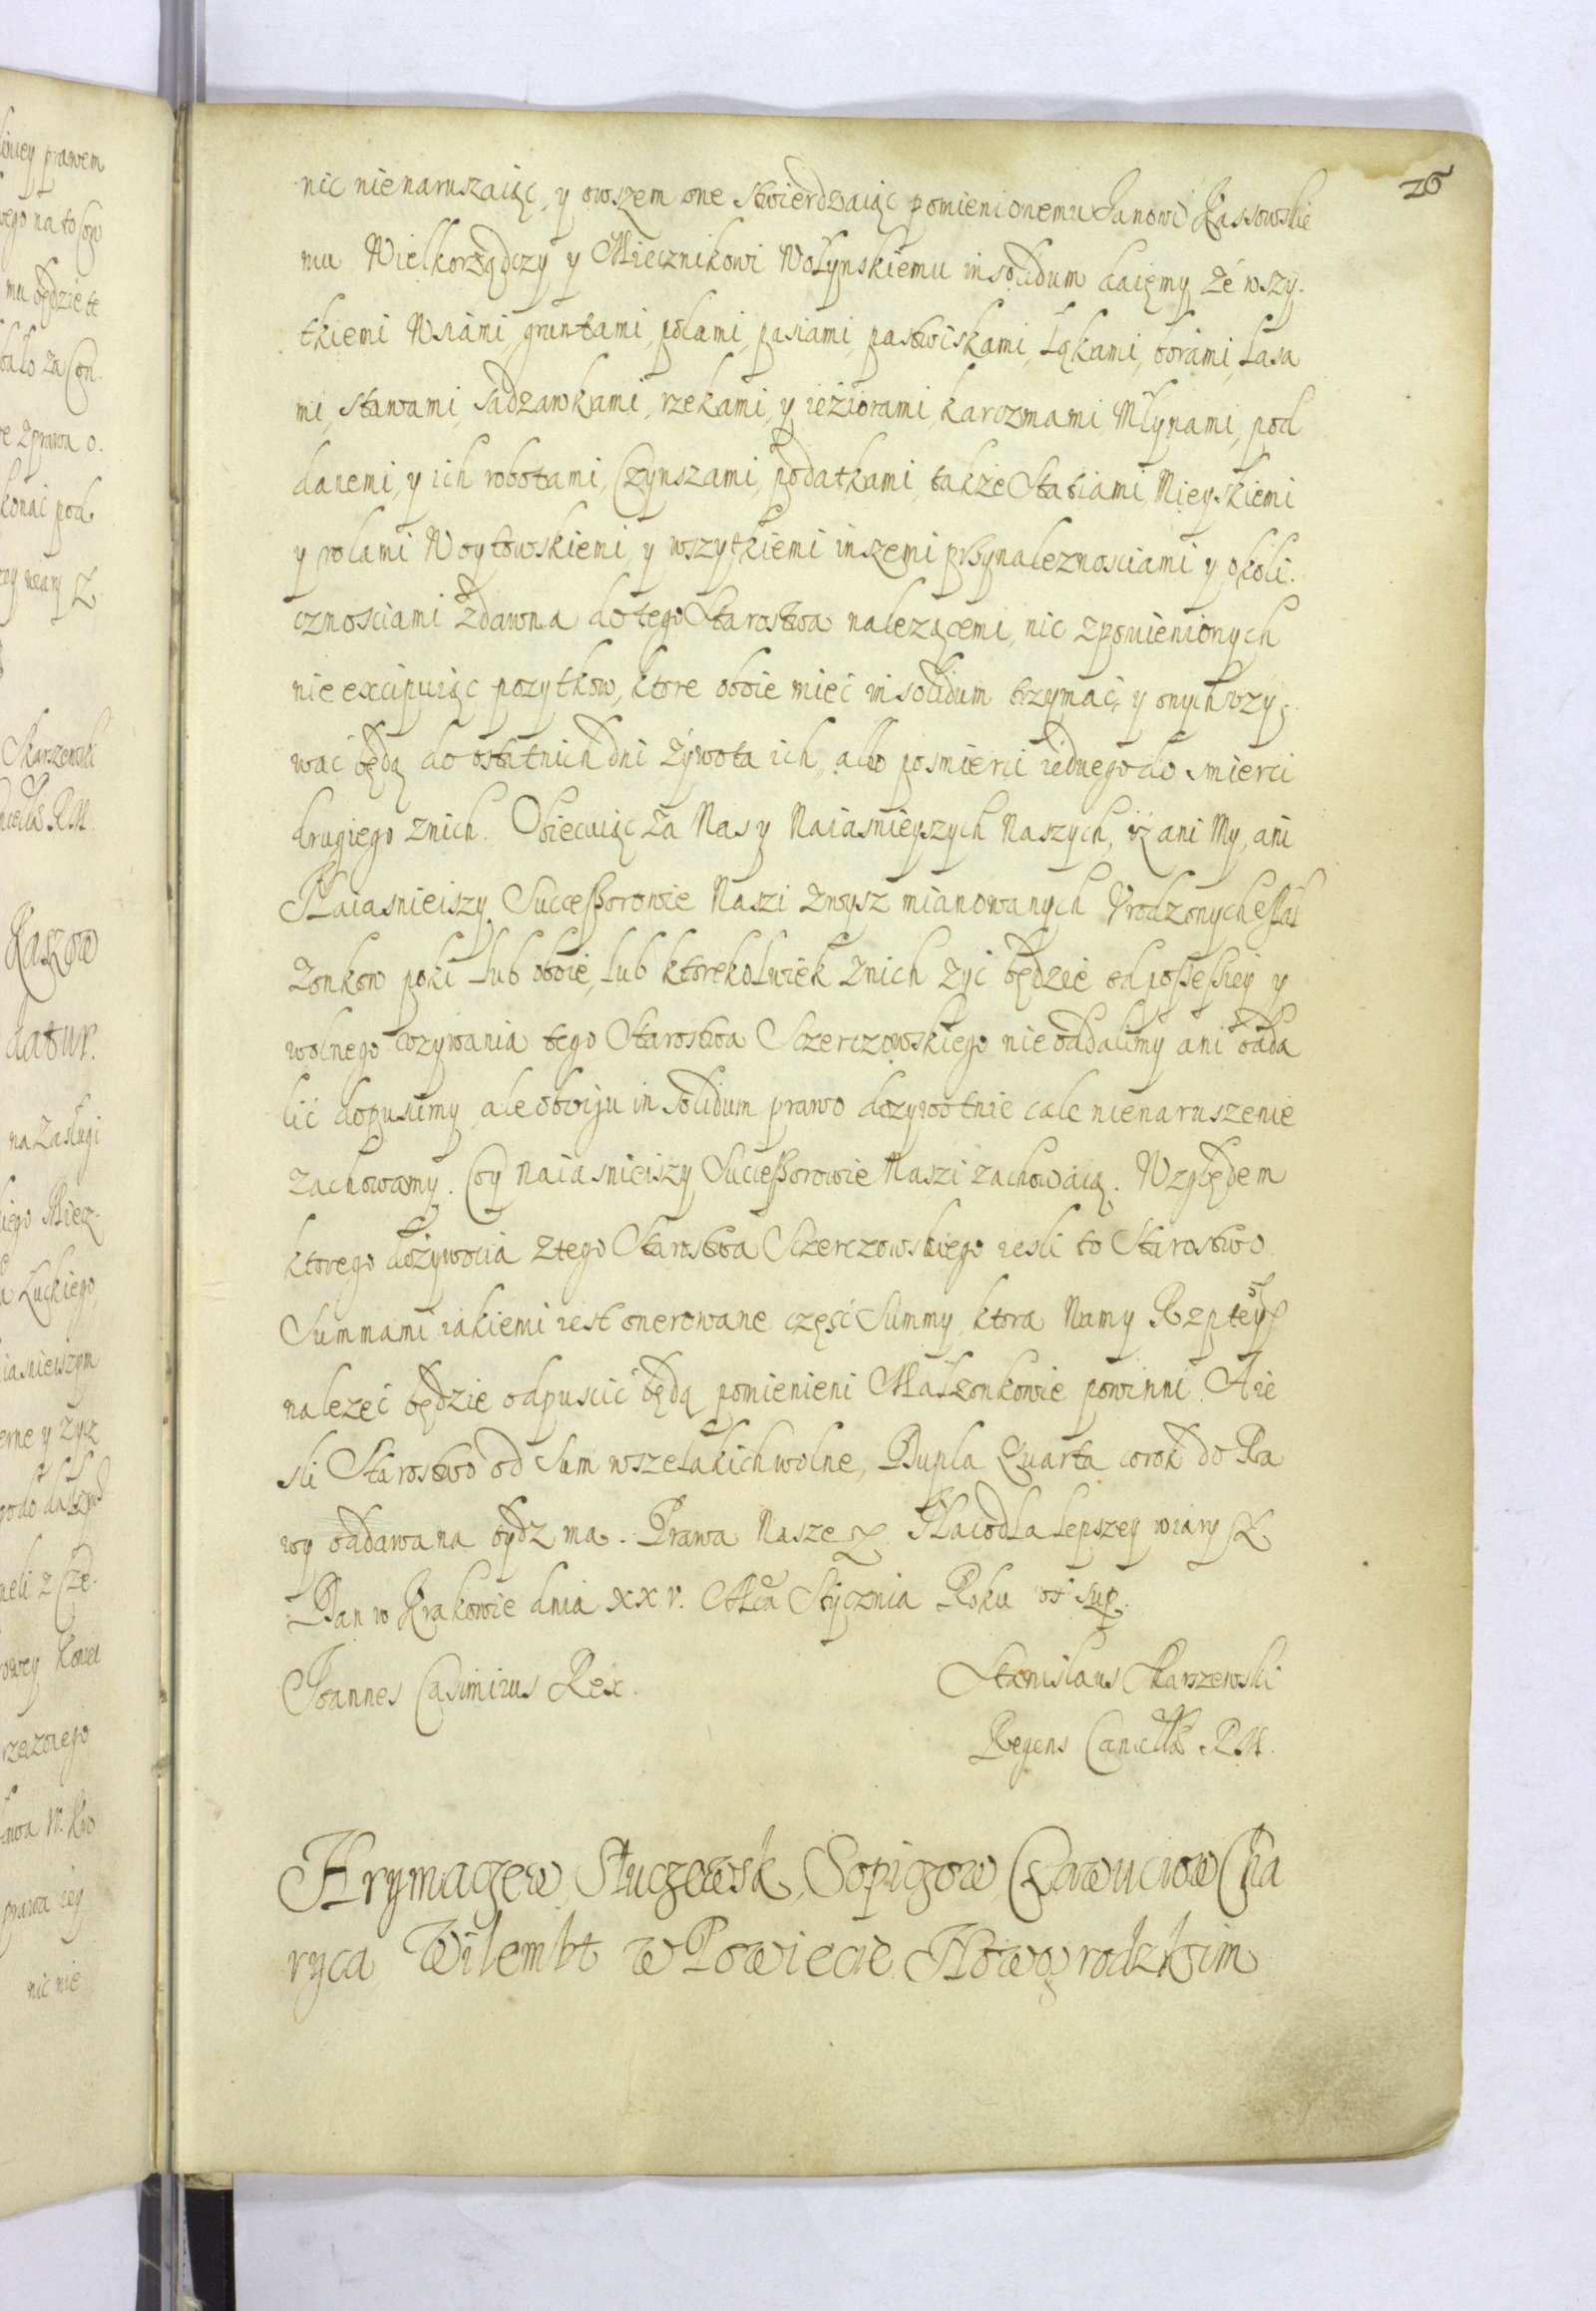 26
nic nienaruszaiąc, y owszem one stwierdzaiąc pomienionemu Janowi Kassowskie
mu Wielkorządczy y Miecznikowi Wołynskiemu in solidum daięmy ze wszy-
tkiemi Wsiami, gruntami, polami, pasiami, pastwiskami, Łąkami, borami, Lasa
mi, stawami, sadzawkami, rzekami, y ieziorami, karczmami, Młynami, pod
danemi, y ich robotami, Czynszami, podatkami, także Staciami, Mieyskiemi
y rolami Woytowskiemi, y wszytkiemi inszemi przynaleznosciami y okoli-
cznosciami zdawna do tego Starostwa nalezącemi, nic zpomienionych
nie excipuiąc pozytkow, ktore oboie mieć in solidum trzymać, y onych vzy-
wać będą do ostatnich dni żywota ich, albo po smierci iednego do smierci
drugiego znich. Obiecuiąc za Nas y Naiasnieyszych Naszych, iż ani My, ani
Naiasnieiszy Successorowie Naszi zwysz mianowanych Vrodzonych Mał
zonkow poki lub oboie, lub ktorekolwiek znich zyć będzie od possessiey y
wolnego vzywania tego Starostwa Sczerczowskiego nie oddalimy ani odda
lić dopusimy, ale oboyju in solidum prawo dozywotnie cale nienaruszenie
zachowamy. Co y Naiasnieiszy Successorowie Naszi zachowaią. Względem
ktorego dożywocia ztego Starostwa Sczerczowskiego iesli to Starostwo
Summami iakiemi iest onerowane część Summy, ktora Namy Rzptey
nalezeć będzie odpuscić będą pomienieni Małzonkowie powinni. A ie
sli Starostwo od Sum wszelakich wolne, Dupla Quarta corok do Ra
wy oddawana bydz ma. Prawa Nasze Na co dla lepszey wiary
Dan w Krakowie dnia XXV. Mca Stycznia Roku vt sup.
Joannes Casimirus Rex.
Stanislaus Skarszewski
Regens Cancellae R.M.
Hrymaczew, Słuczewsk, Sopigow, Cha
ryca Wilembt w Powiecie Nowogrodzkim